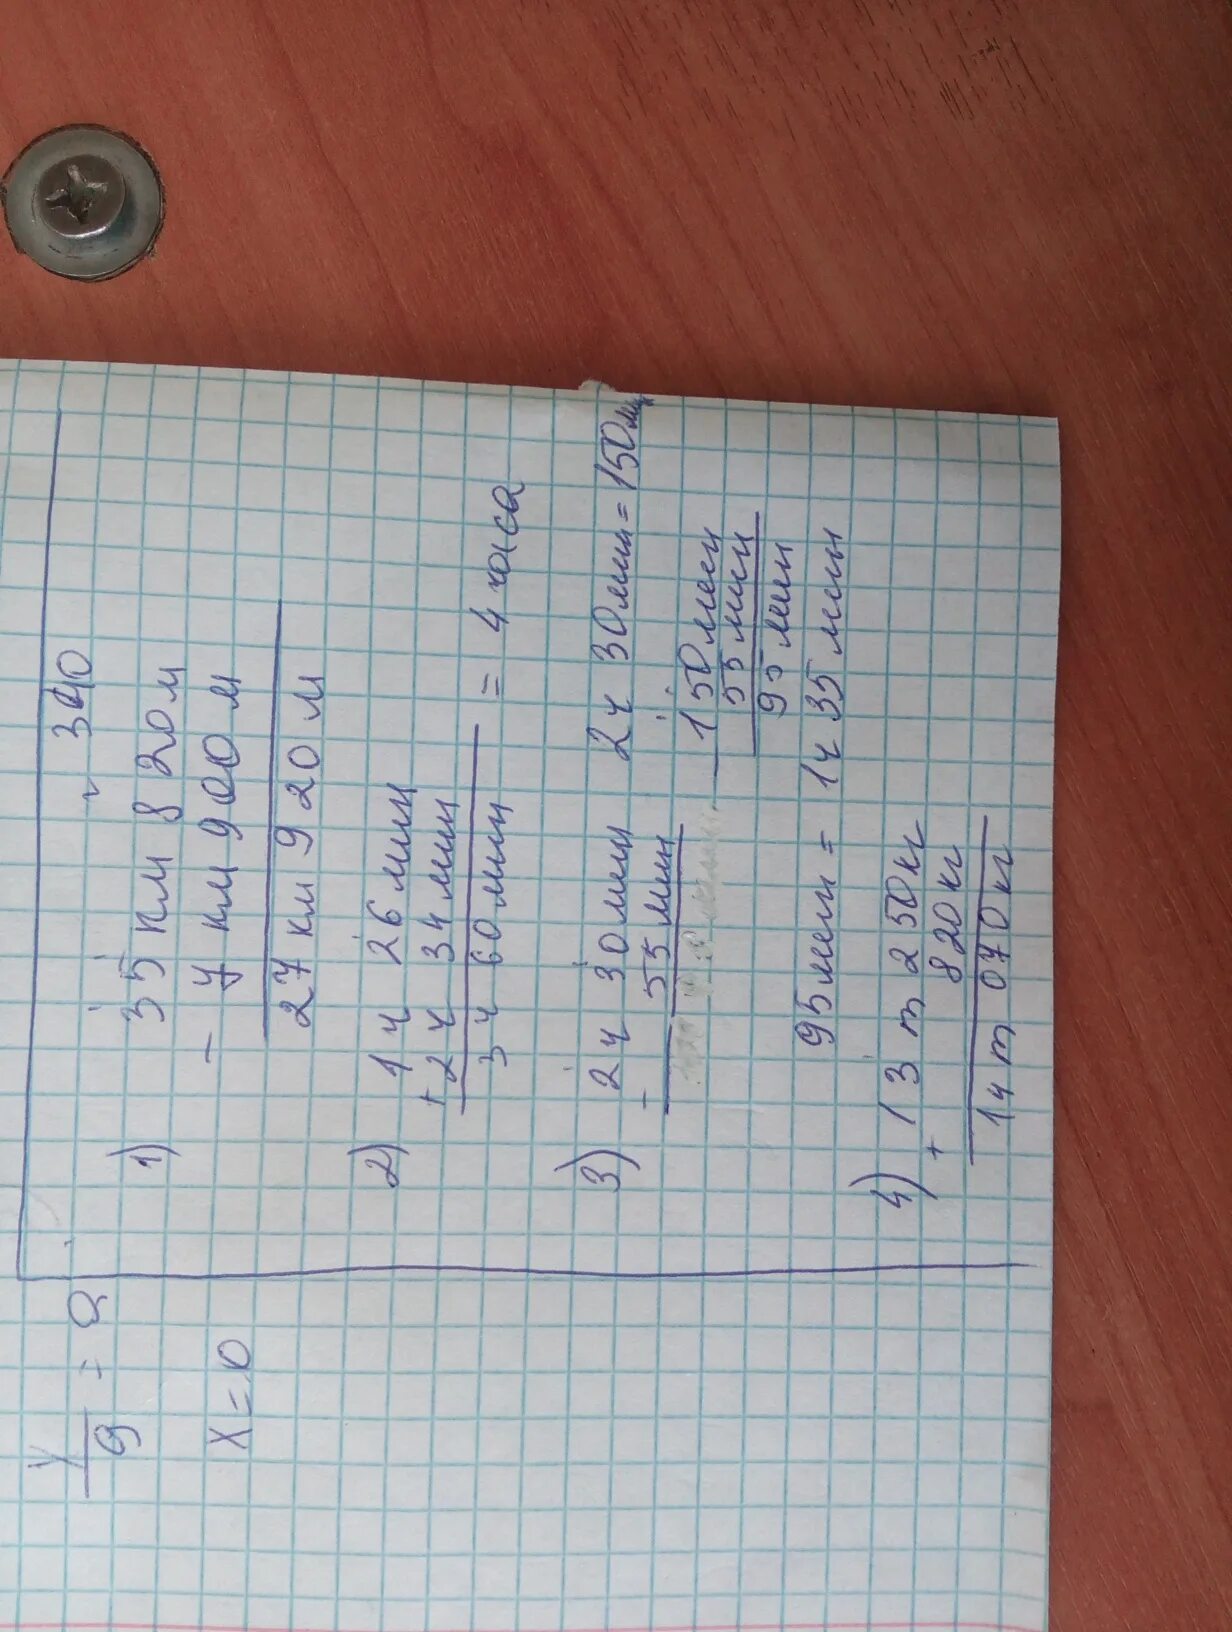 x/9 = 0
x = 0
№ 340
1) 35 км 820 м
- 7 км 900 м
27 км 920 м
2) 1 ч 26 мин
+ 2 ч 34 мин
3 ч 60 мин = 4 часа
3) - 2 ч 30 мин
55 мин
2 ч 30 мин = 150 м
- 150 мин
55 мин
95 мин
95 мин = 1 ч 35 мин
4) + 13 т 250 кг
820 кг
14 т 070 кг